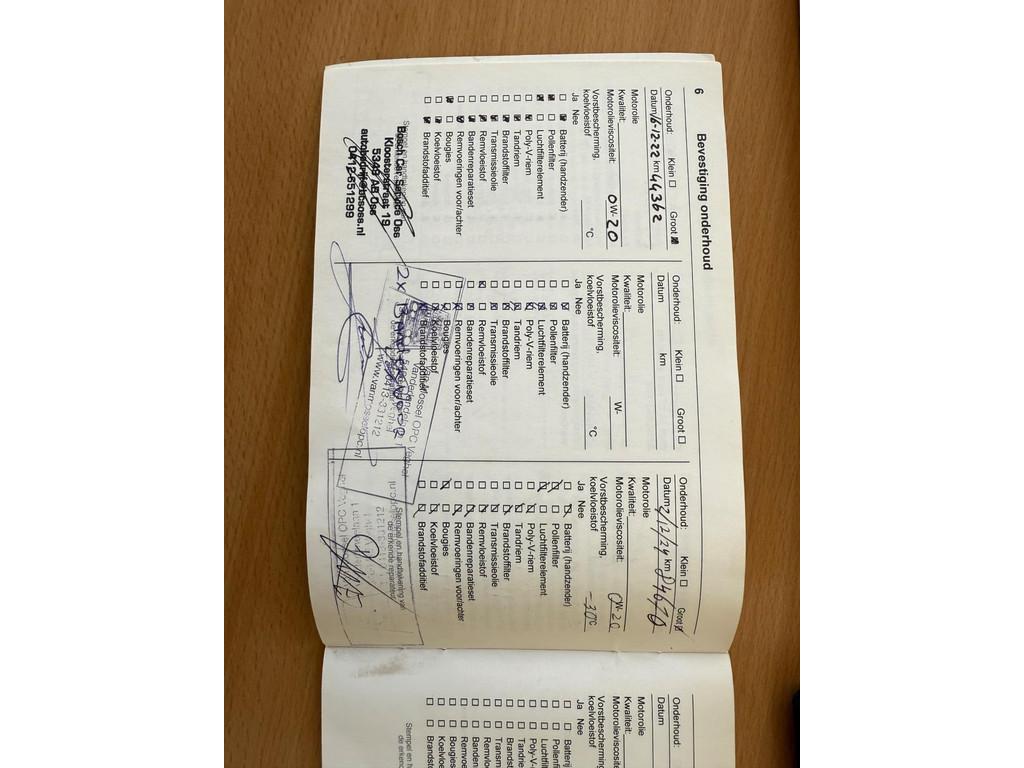 6
Bevestiging onderhoud
Onderhoud: Klein ☐ Groot ☒
Datum 16-12-22 km 44362
Motorolie
Kwaliteit:
Motorolieviscositeit: 0W-20
Vorstbescherming,
koelvloeistof °C
Ja Nee
Batterij (handzender)
Pollenfilter
Luchtfilterelement
Poly-V-riem
Tandriem
Brandstoffilter
Transmissieolie
Remvloeistof
Bandenreparatieset
Remvoeringen voor/achter
Bougies
Koelvloeistof
Brandstofadditief
Bosch Car Service Oss
Kloosterstraat 19
5349 AB Oss
autobedrijf@bcsoss.nl
0412-651299
Onderhoud: Klein ☐ Groot ☐
Datum km
Motorolie
Kwaliteit:
Motorolieviscositeit: W-
Vorstbescherming,
koelvloeistof °C
Ja Nee
Batterij (handzender)
Pollenfilter
Luchtfilterelement
Poly-V-riem
Tandriem
Brandstoffilter
Transmissieolie
Remvloeistof
Bandenreparatieset
Remvoeringen voor/achter
Bougies
Koelvloeistof
Brandstofadditief
2x
Mossel OPC Veghel
www.vanmosselopc.nl
Onderhoud: Klein ☐ Groot ☒
Datum km
Motorolie
Kwaliteit:
Motorolieviscositeit: 0W-20
Vorstbescherming,
koelvloeistof -30°C
Ja Nee
Batterij (handzender)
Pollenfilter
Luchtfilterelement
Poly-V-riem
Tandriem
Brandstoffilter
Transmissieolie
Remvloeistof
Bandenreparatieset
Remvoeringen voor/achter
Bougies
Koelvloeistof
Brandstofadditief
Stempel en handtekening van
de erkende reparateur
Onderhoud:
Datum
Motorolie
Kwaliteit:
Motorolieviscosite
Vorstbescherming,
koelvloeistof
Ja Nee
Batterij
Pollenf
Luchtfi
Poly-V-
Tandrie
Brandst
Transm
Remvloe
Banden
Remvoe
Bougies
Koelvloe
Brandst
Stempel en h
de erken